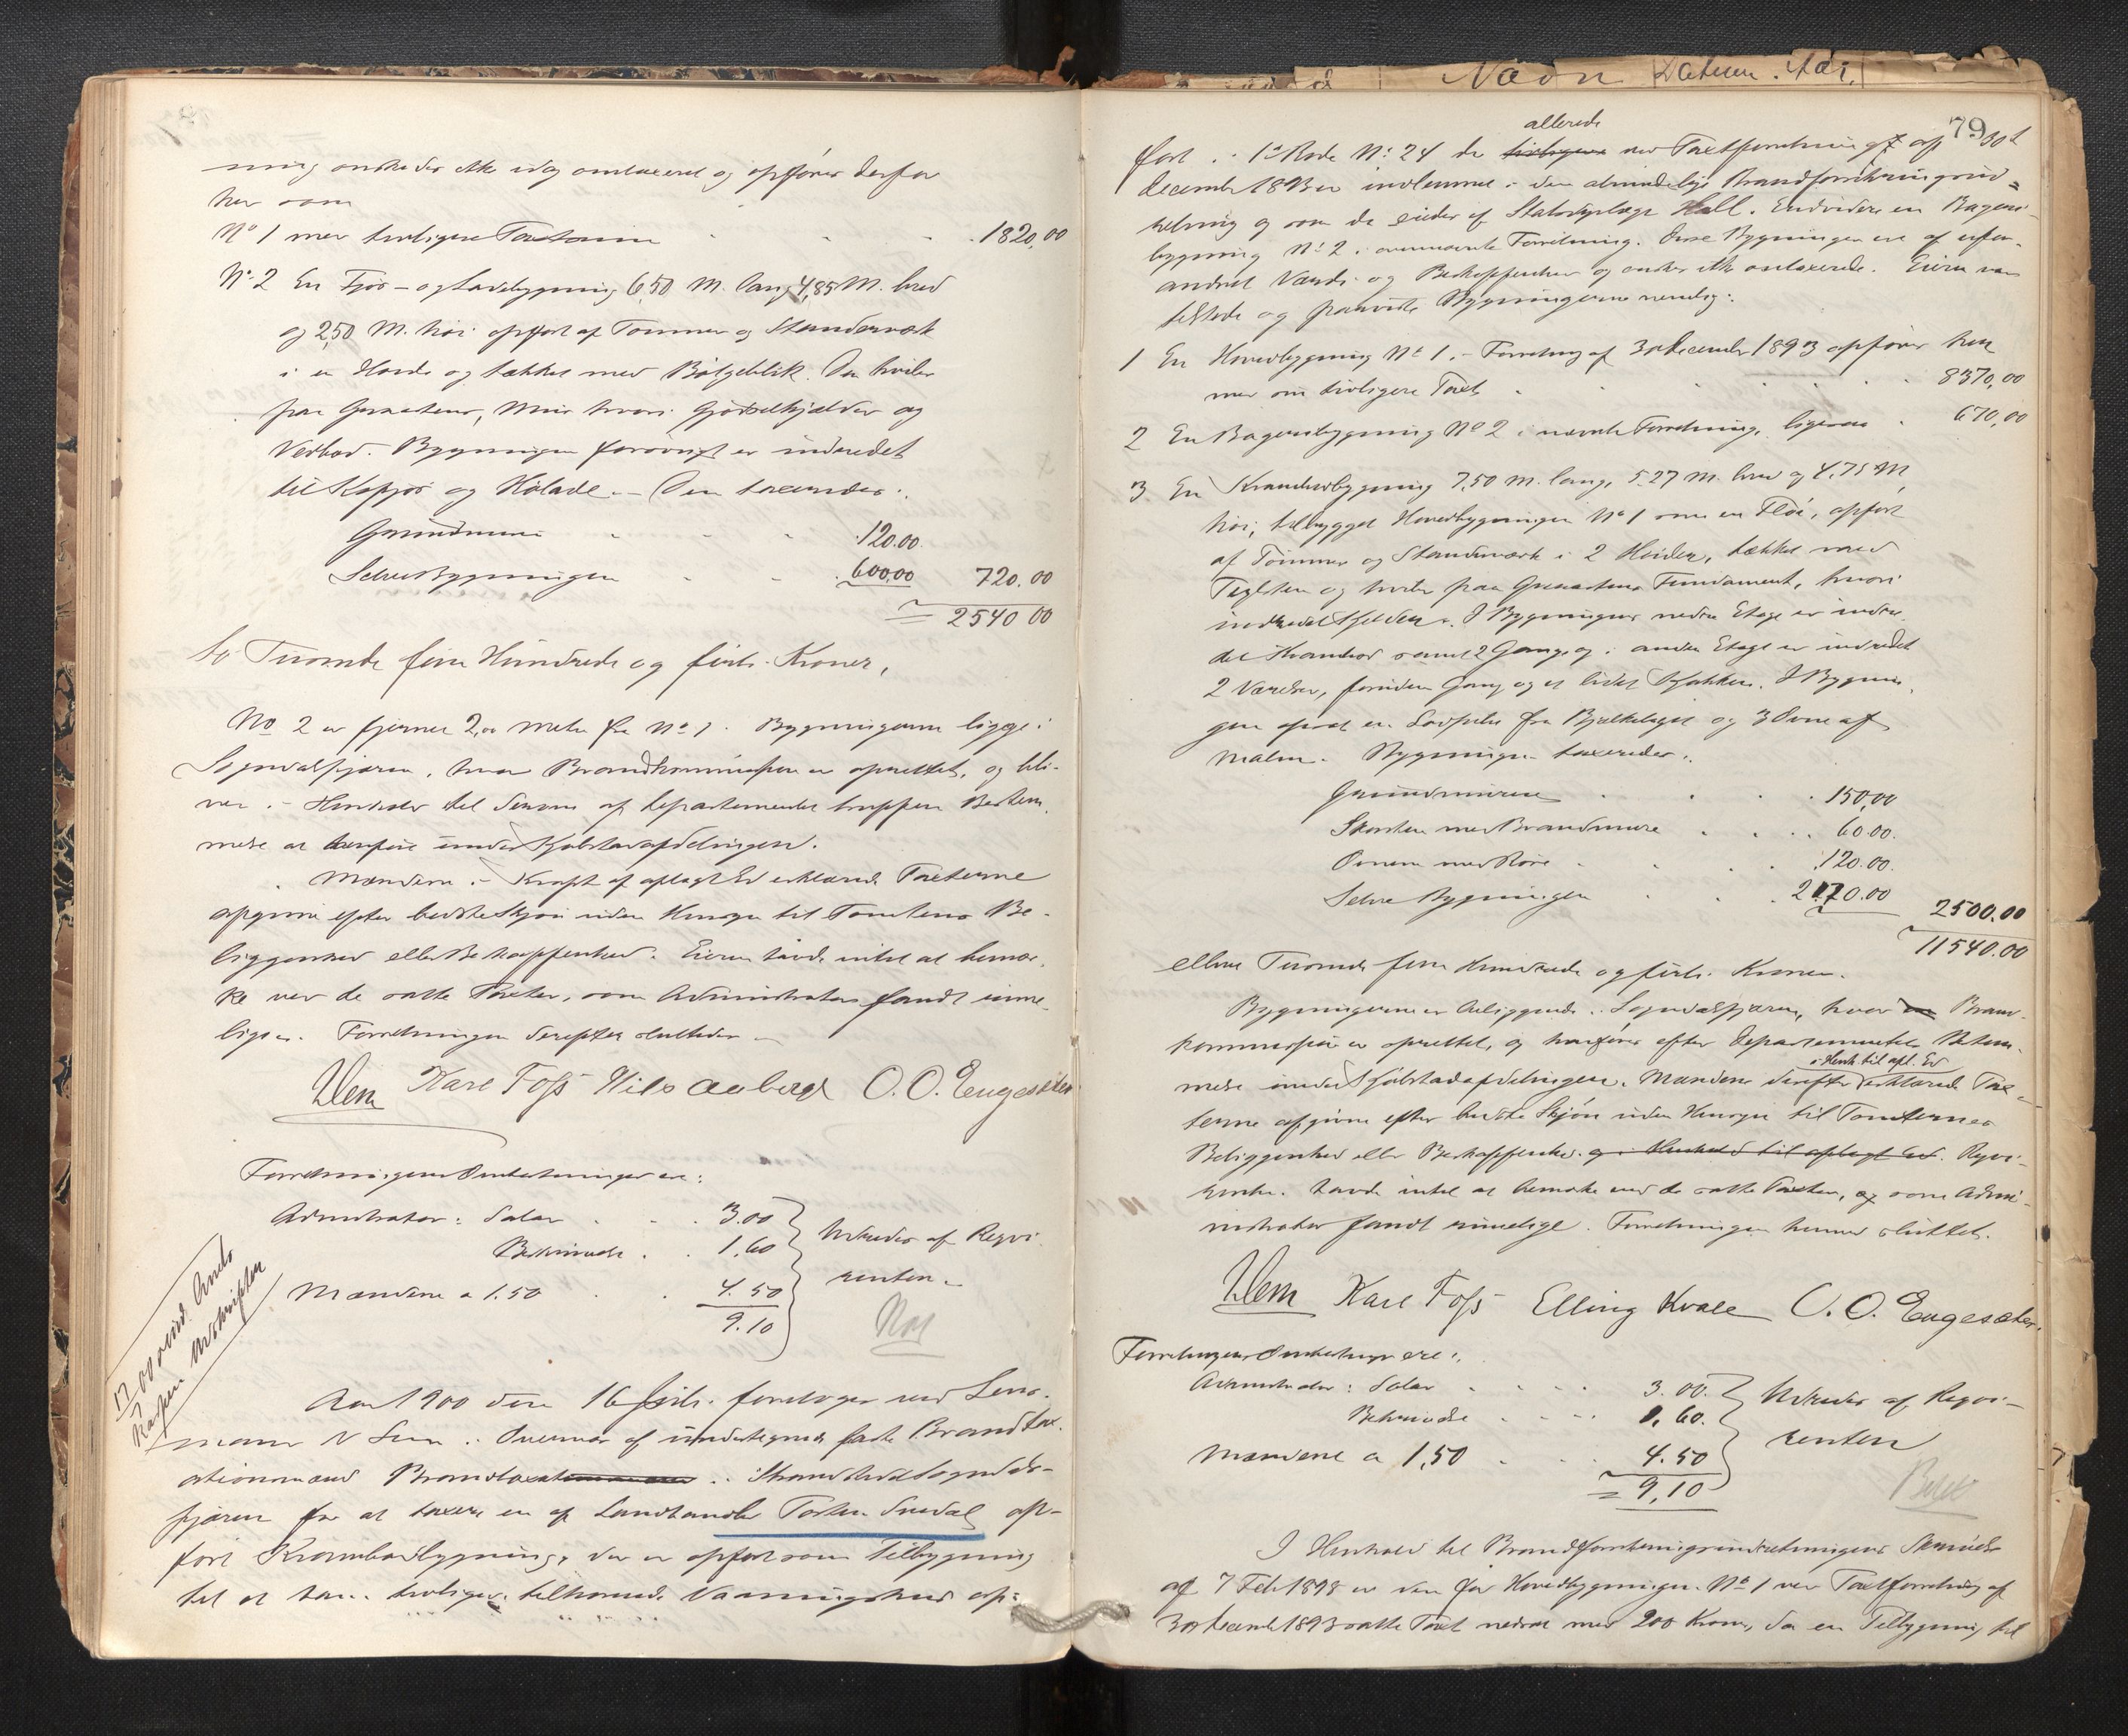 ning ønskedes ikke idag omtaxeret og opføres derfor
her som
No 1 med tidligere Taxtsum 1820,00
No 2 En Fjøs- og Ladebygning 6,50 M. lang 4,85 M. bred
og 2,50 M. høi opført af Tømmer og Standerværk
i en Høide og tækket med Bølgeblik. Den hviler
paa Graastens Mur hvori Gjødselkjælder og
Vedbod. Bygningen forøvrigt er indredet
til Kofjøs og Hølade. – Den taxeredes:
Grundmuren 120.00
Selve Bygningen 600.00 720.00
= 2540 00
to Tusinde fem Hundrede og førti Kroner,
No 2 er fjernet 2,00 Meter fra No 1. Bygningerne ligge i
Sogndalsfjæren, hvor Brandkommission er oprettet, og bli-
ver i Henhold til Senere af Departementet truffen Bestem-
melse at henføre under Kjøbstadafdelingen.
Mændene i Kraft af aflagt Ed erklærede Taxterne
afgivne efter bedste Skjøn uden Hensyn til Tomtens Be-
liggenhed eller Beskaffenhed. Eieren havde intet at bemær-
ke ved de satte Taxter, som Administrator fandt rime-
lige. Forretningen derefter sluttedes
Karl Foss Nils Aaberge O. O. Engesæter
Forretningens Omkostninger ere:
Administrator: Salær 3.00
1.60 Udredes af Reqvi-
Mændene a 1.50 4.50 renten.
9.10
17/7 00
Aar 1900 den 16 Juli foretoges ved Lens-
mann i Overvær af undertegnede faste Brandtax-
ationsmænd Brandtax i Sogndals-
fjæren for at taxere en af Landhandler Torsten Snedal op-
ført Krambodbygning, der er opført som Tilbygning
til et ham tidligere tilhørende Vaaningshus op-
79
allerede
ført i 1ste Rode No 24 der tidligere ved Taxtforretning af 30t
December 1893 er indlemmet i den almindelige Brandforsikringsind-
retning og som da eiedes af Hall. Endvidere en Bageri-
bygning No 2 i ovennævnte Forretning. Disse Bygninger ere af ufor-
andret Værdi og Beskaffenhed og ønskes ikke omtaxerede. Eieren var
tilstede og paaviste Bygningerne nemlig:
1 En Hovedbygning No 1 i Forretning af 30 December 1893 opføres her
med sin tidligere Taxt 8370,00
2 En Bageribygning No 2 i nævnte Forretning, ligesaa 670,00
3 En Krambodbygning 7,50 M. lang, 5.27 M. bred og 4,75 M
høi, tilbygget Hovedbygningen No 1 som en Fløi, opført
af Tømmer og Standerværk i 2 Høider, tækket med
Teglsten og hviler paa Graastens Fundament, hvori
indredet Kjelder. I Bygningens nedre Etage er indre-
det Krambod samt 2 Gange og i anden Etage er indredet
2 Værelser, foruden Gang og et lidet Kjøkken. I Bygnin-
gen opsat en Sodpibe fra Bjelkelaget og 3 Ovne af
Malm. Bygningen taxeredes:
Grundmuren 150,00
Skorsten med Brandmure 60.00.
Ovnene med Rør 120.00.
Selve Bygningen 2170.00 2500.00
11540.00
elleve Tusinde fem Hundrede og førti Kroner.
Bygningerne er beliggende i Sogndalsfjæren, hvor Brand-
kommission er oprettet, og henføres efter Departementets Bestem-
i Henh. til afl. Ed
melse under Kjøbstadafdelingen. Mændene derefter erklærede Tax-
terne afgivne efter bedste Skjøn uden Hensyn til Tomternes
Beliggenhed eller Beskaffenhed og i Henhold til aflagt Ed. Reqvi-
renten havde intet at bemærke ved de satte Taxter, og som Admi-
nistrator fandt rimelige. Forretningen hermed sluttet.
Karl Foss Elling Kvale O. O. Engesæter.
Forretningens Omkostninger ere:
Administrator: Salær 3.00. Udredes af Reqvi-
1,60. renten
Mændene a 1,50 4.50
= 9,10
Betalt
I Henhold til Brandforsikringsindretningens Skrivelse
af 7 Feb 1898 er den for Hovedbygningen No 1 ved Taxtforretning af
30 December 1893 satte Taxt nedsat med 200 Kroner, da en Tilbygning til